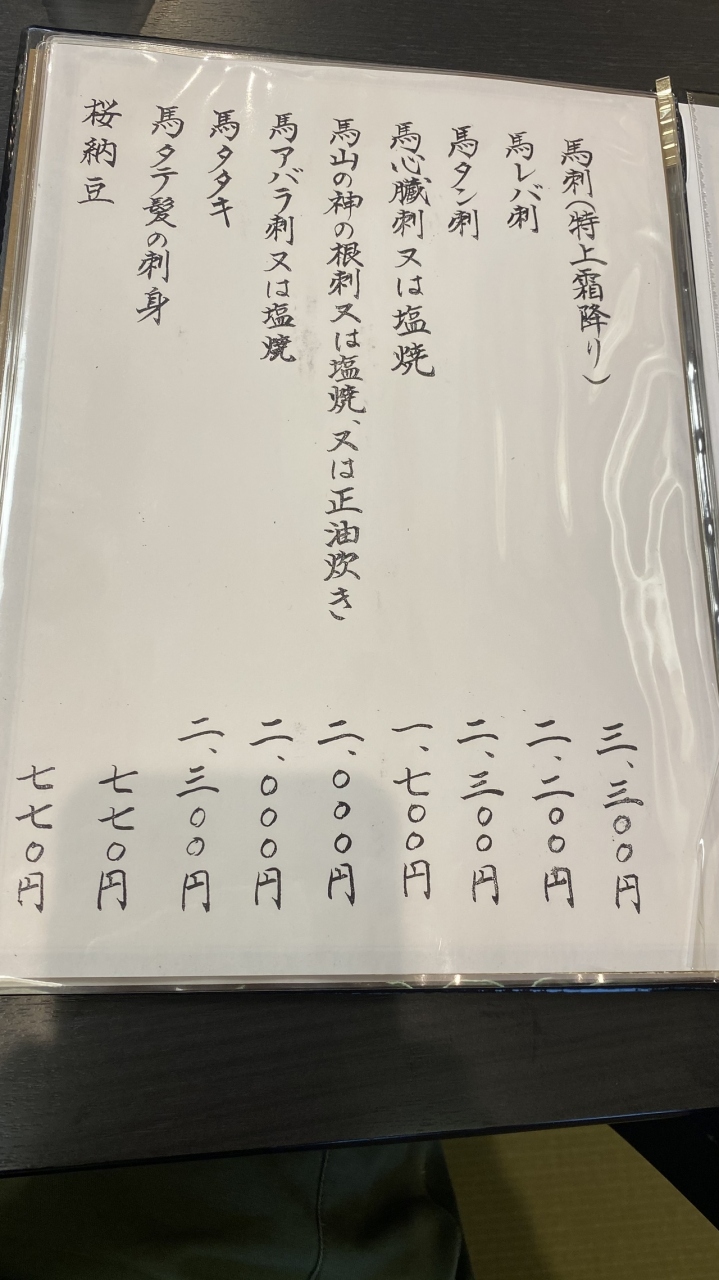 馬刺(特上霜降り) 三、三〇〇円
馬レバ刺 二、二〇〇円
馬タン刺 二、三〇〇円
馬心臓刺又は塩焼 一、七〇〇円
馬山の神の根刺又は塩焼、又は正油炊き 二、〇〇〇円
馬アバラ刺又は塩焼 二、〇〇〇円
馬タタキ 二、三〇〇円
馬タテ髪の刺身 七七〇円
桜納豆 七七〇円